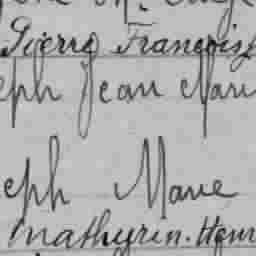 Pierre François
eph Jean Marie
eph Marie
Mathurin. Henr